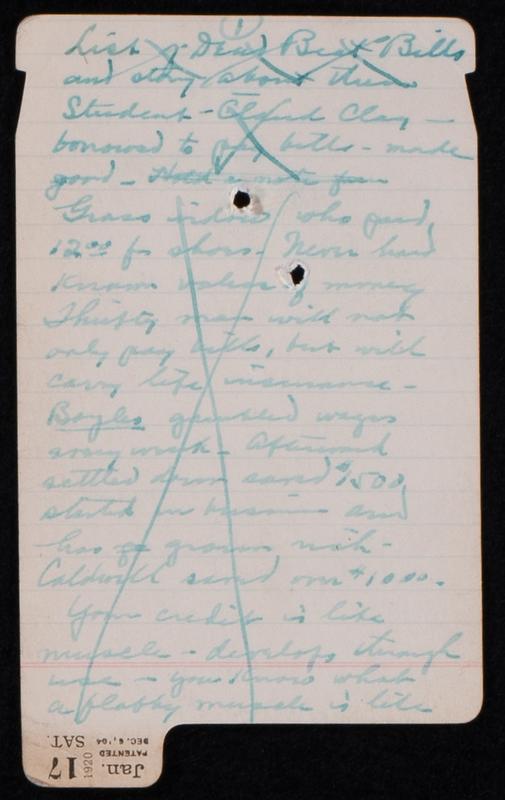 1
List of Dead Beat Bills
and story about them
Student - Clay -
borrowed to pay bills - made
good - Hold a note from
Grass widow who paid
12 00 for shoes. Never had
known value of money
Thrifty man will not
only pay bills, but will
carry life insurance -
Boyles gambled wages
every week - Afterward
settled down saved $1500,
started in business and
has grown rich -
Caldwell saved over $1000.
Your credit is like
muscle - develops through
use - you know what
a flabby muscle is like
Jan. 17 1920 SAT.
PATENTED
DEC. 6, '04